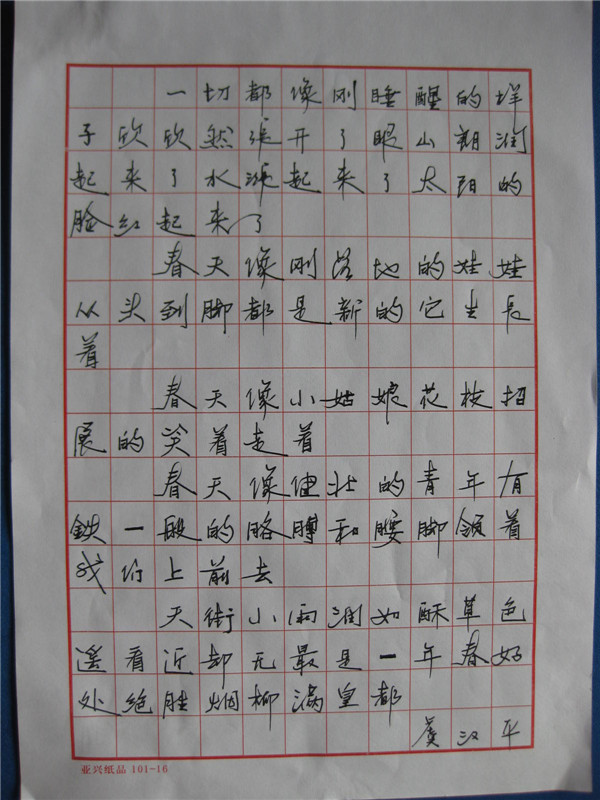 一切都像刚睡醒的样
子欣欣然張开了眼山朗润
起来了水涨起来了太阳的
脸红起来了
春天像刚落地的娃娃
从头到脚都是新的它生長
着
春天像小姑娘花枝招
展的笑着走着
春天像健壮的青年有
鉄一般的胳膊和腰脚領着
我们上前去
天街小雨润如酥草色
遥看近却无最是一年春好
处绝胜烟柳满皇都
汉平
亚兴纸品 101-16